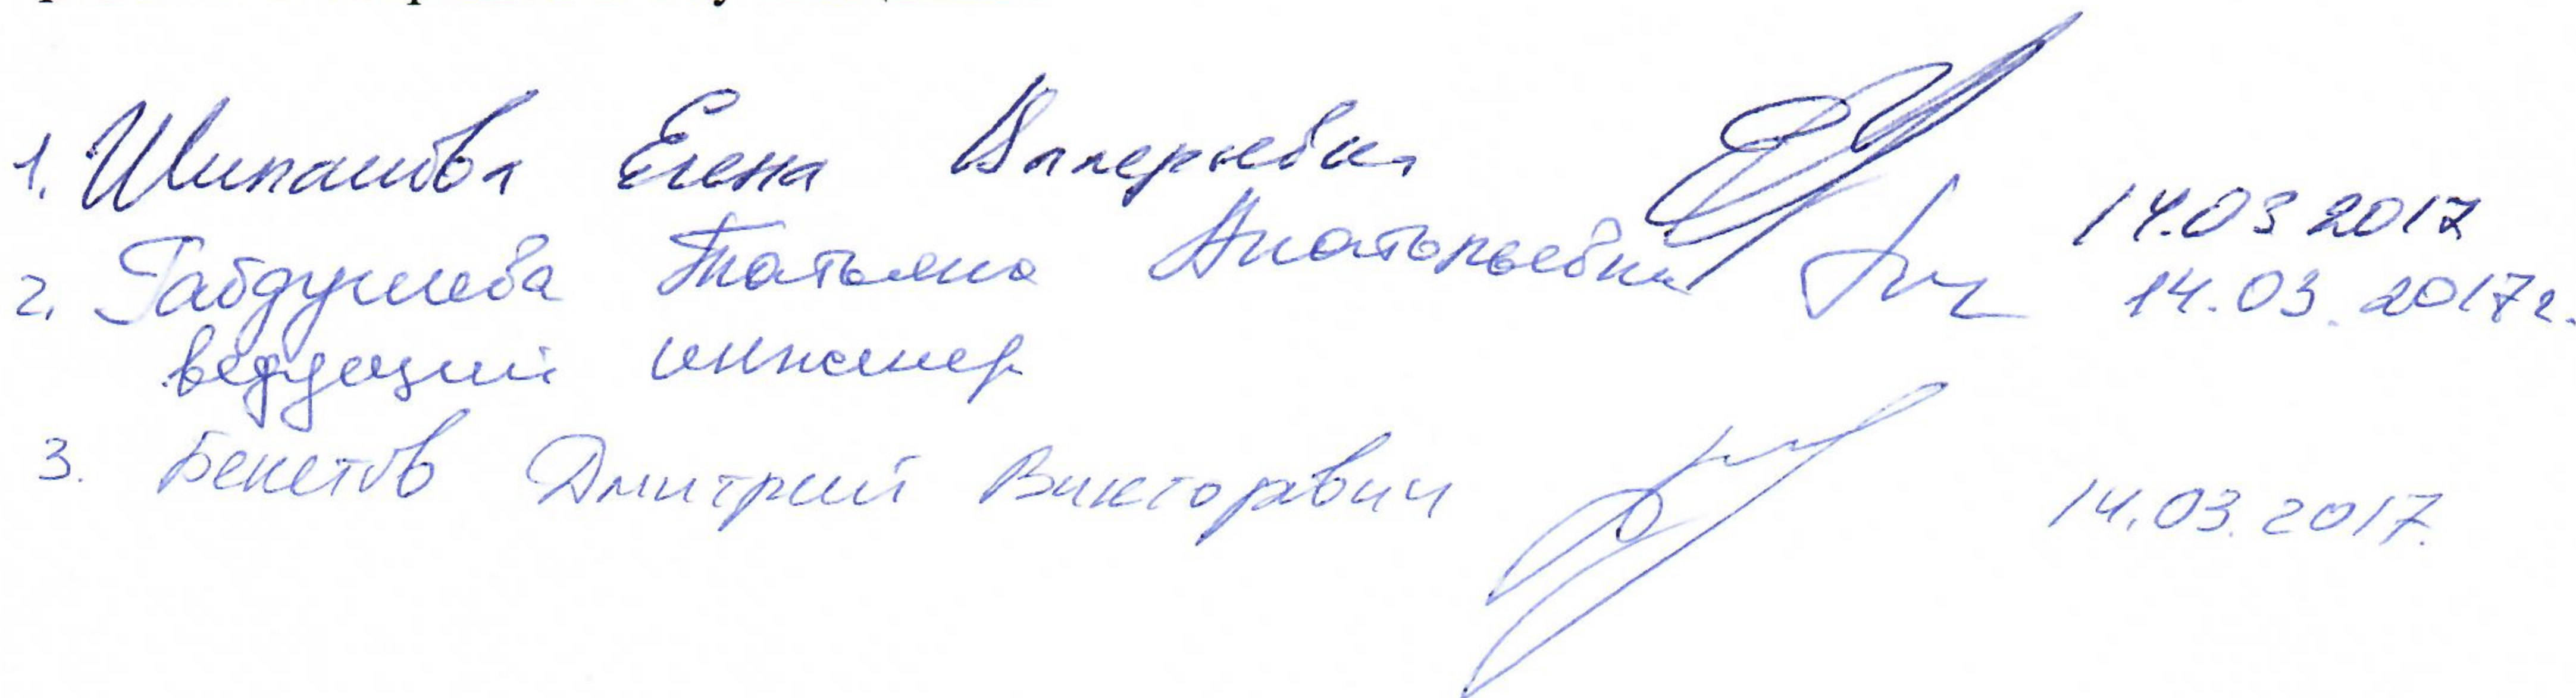 1. Шипанова Елена Валерьевна 14.03 2017
2. Габдушева Татьяна Анатольевна 14.03.2017г.
ведущий инженер
3. Бекетов Дмитрий Викторович 14.03.2017.